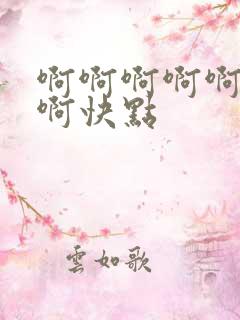 啊啊啊啊啊
啊快點
雲如歌